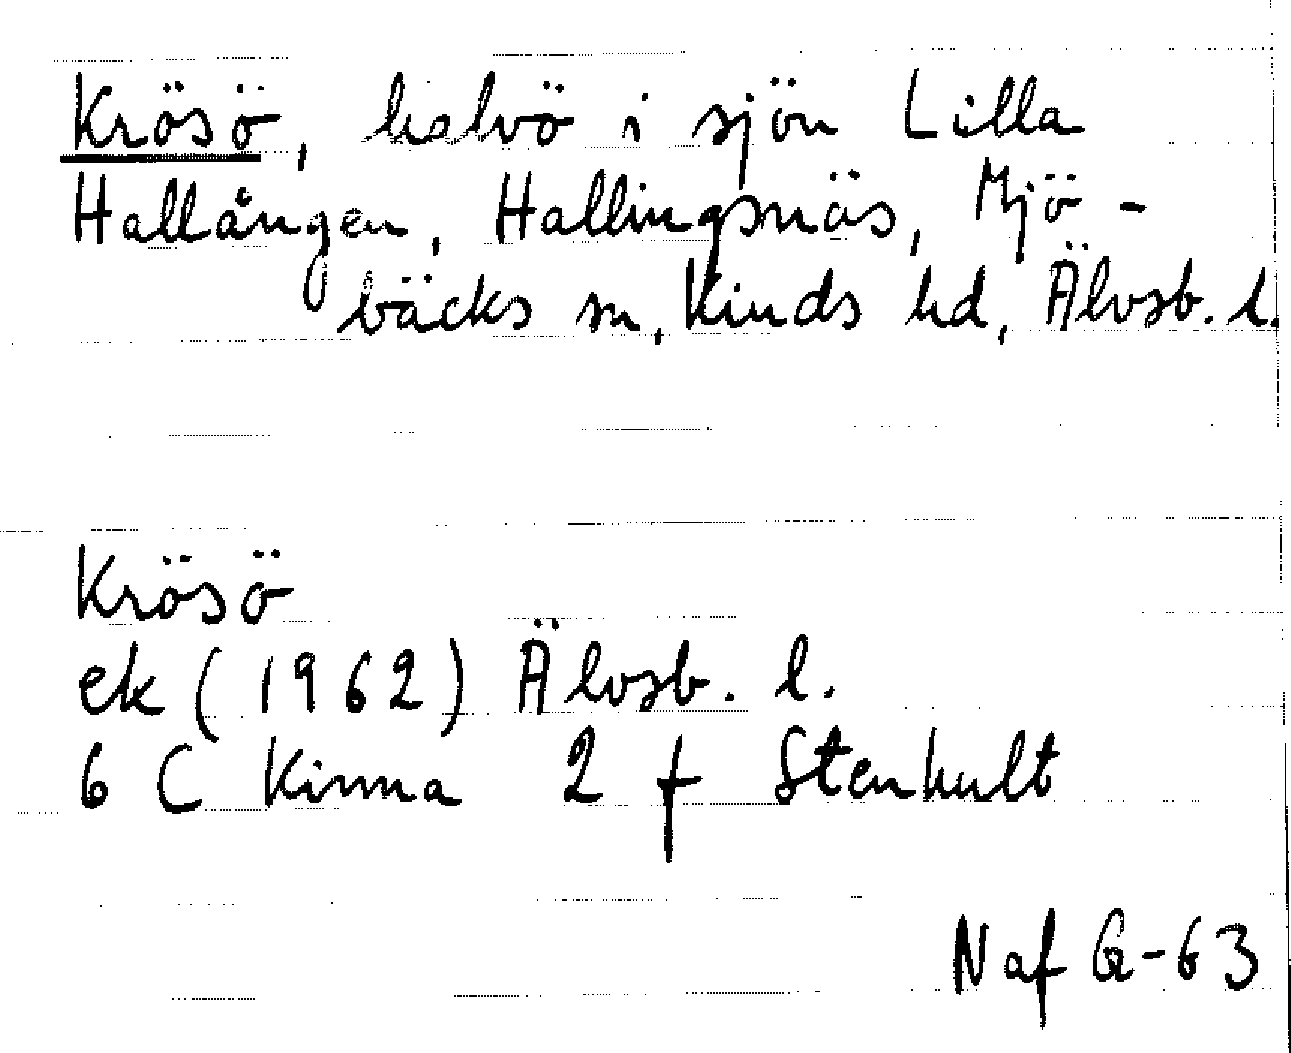 Krösö, halvö i sjön Lilla
Hallången, Hallingsnäs, Mjö-
bäcks sn, Kinds hd, Älvsb. l.
Krösö
ek (1962) Älvsb. l.
6 C Kinna 2 f Stenhult
Naf G-63